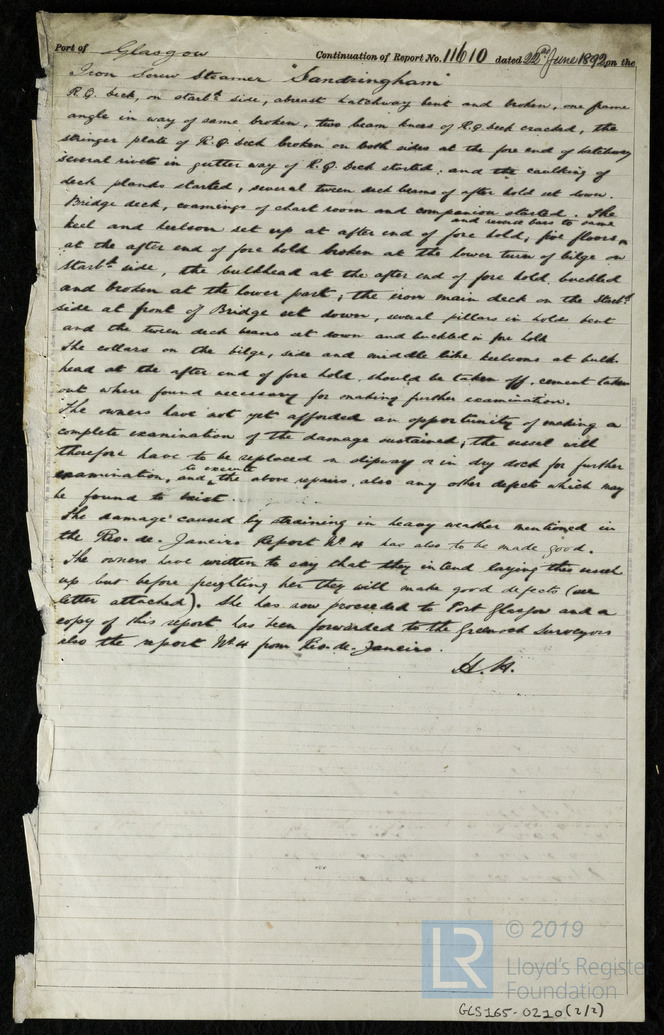 Port of Glasgow Continuation of Report No. 11610 dated 22nd June 1892 on the
Iron Screw Steamer "Sandringham"
R.Q. deck, on starbd side, abreast hatchway bent and broken, one frame
angle in way of same broken, two beam knees of R.Q. deck cracked, the
stringer plate of R.Q. deck broken on both sides at the fore end of hatchway
several rivets in gutter way of R.Q. deck started; and the caulking of
deck planks started, several tween deck beams of after hold set down.
Bridge deck, coamings of chart room and companion started. The
keel and keelson set up at after end of fore hold; five floors and reverse bars to same
at the after end of fore hold broken at the lower turn of bilge on
starbd side, the bulkhead at the after end of fore hold buckled
and broken at the lower part; the iron main deck on the starbd
side at front of Bridge set down, several pillars in holds bent
and the tween deck beams set down and buckled in fore hold
The collars on the bilge, side and middle line keelsons at bulk
head at the after end of fore hold should be taken off, cement taken
out where found necessary for making further examination.
The owners have not yet afforded an opportunity of making a
complete examination of the damage sustained; the vessel will
therefore have to be replaced on slipway or in dry dock for further
examination, and to execute the above repairs, also any other defects which may
be found to exist
The damage caused by straining in heavy weather mentioned in
the Rio. de. Janeiro Report No 4 has also to be made good.
The owners have written to say that they intend laying this vessel
up but before freighting her they will make good defects (see
letter attached). She has now proceeded to Port Glasgow and a
copy of this report has been forwarded to the Greenock Surveyors
also the report No 4 from Rio. de. Janeiro.
H.H.
© 2019
LR
Lloyd's Register
Foundation
GLS165-0210(2/2)